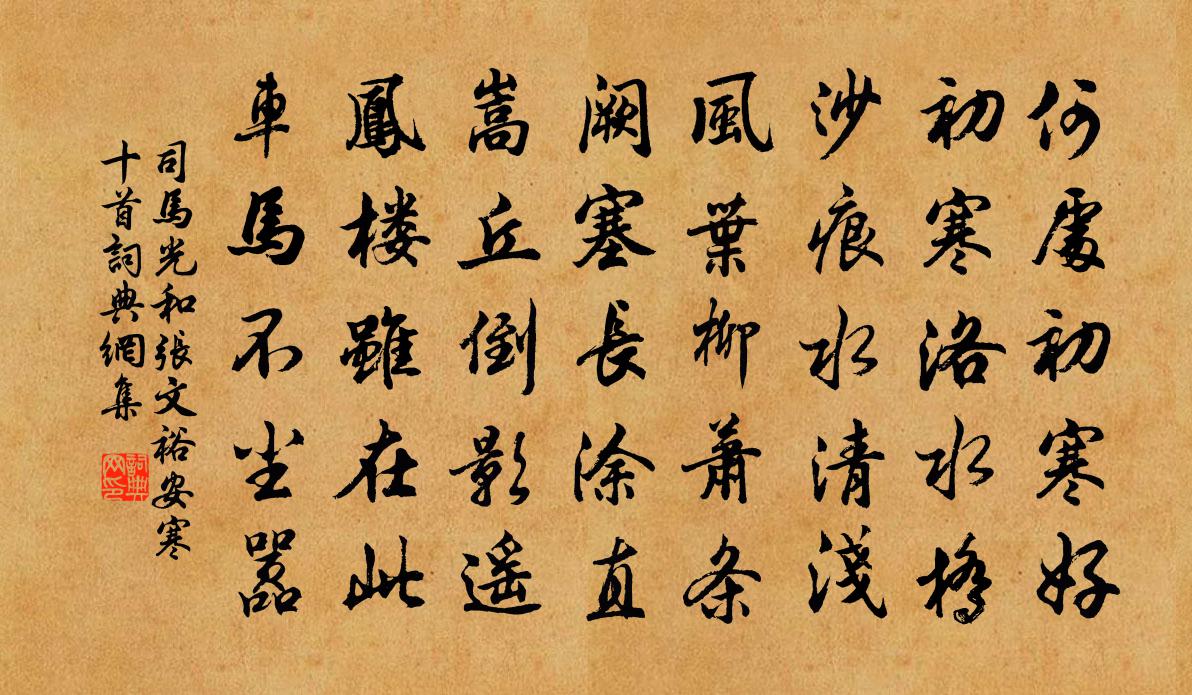 何處初寒好
初寒洛水橋
沙痕水清淺
風葉柳蕭条
闕塞長涂直
嵩丘倒影遥
鳳楼雖在此
車馬不尘嚣
司馬光和張文裕安寒
十首詞典網集
詞典
网印